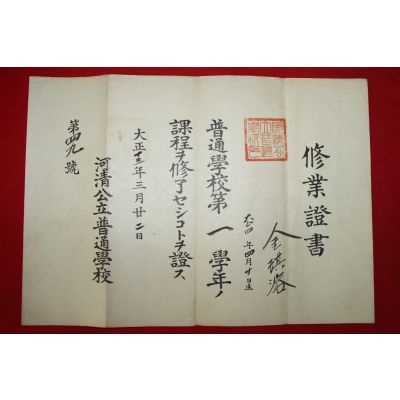 修業證書
金琪洛
大四年四月廿日生
普通學校第一學年ノ
課程ヲ修了セシコトヲ證ス
大正十三年三月廿二日
河清公立普通學校
第四九號